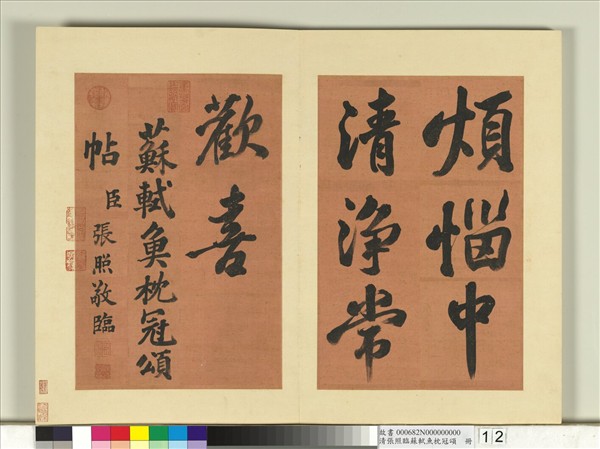 煩惱中
清淨常
歡喜
蘇軾魚枕冠頌
帖
臣張照敬臨
故書 000682N000000000
清張照臨蘇軾魚枕冠頌 冊
12